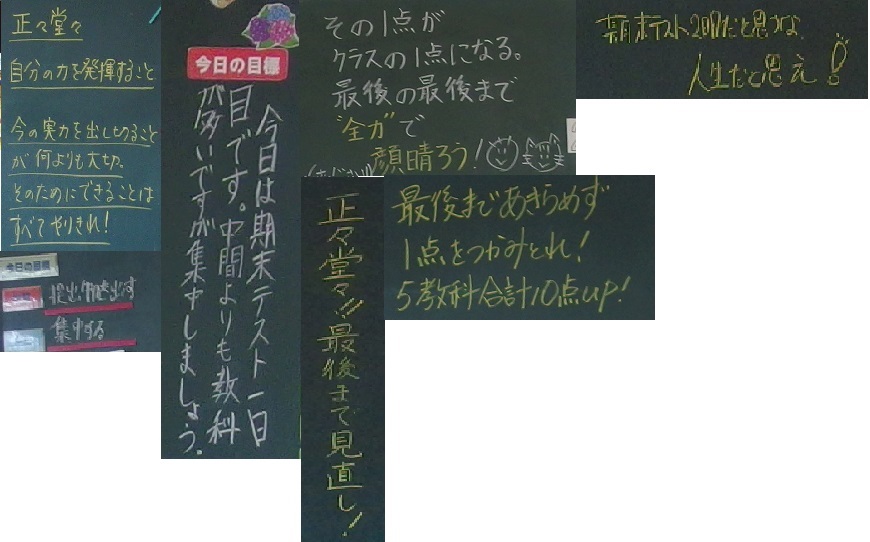 正々堂々
自分の力を発揮すること
今の実力を出し切ること
が何よりも大切。
そのためにできることは
すべてやりきれ!
今日の目標
提出物を出す
集中する
今日の目標
今日は期末テスト一日
目です。中間よりも教科
が多いですが集中しましょう。
その1点が
クラスの1点になる。
最後の最後まで
"全力"で
顔晴ろう!
正々堂々!!最後まで見直し!
最後まであきらめず
1点をつかみとれ!
5教科合計10点up!
期末テスト2日目だと思うな、
人生だと思え!